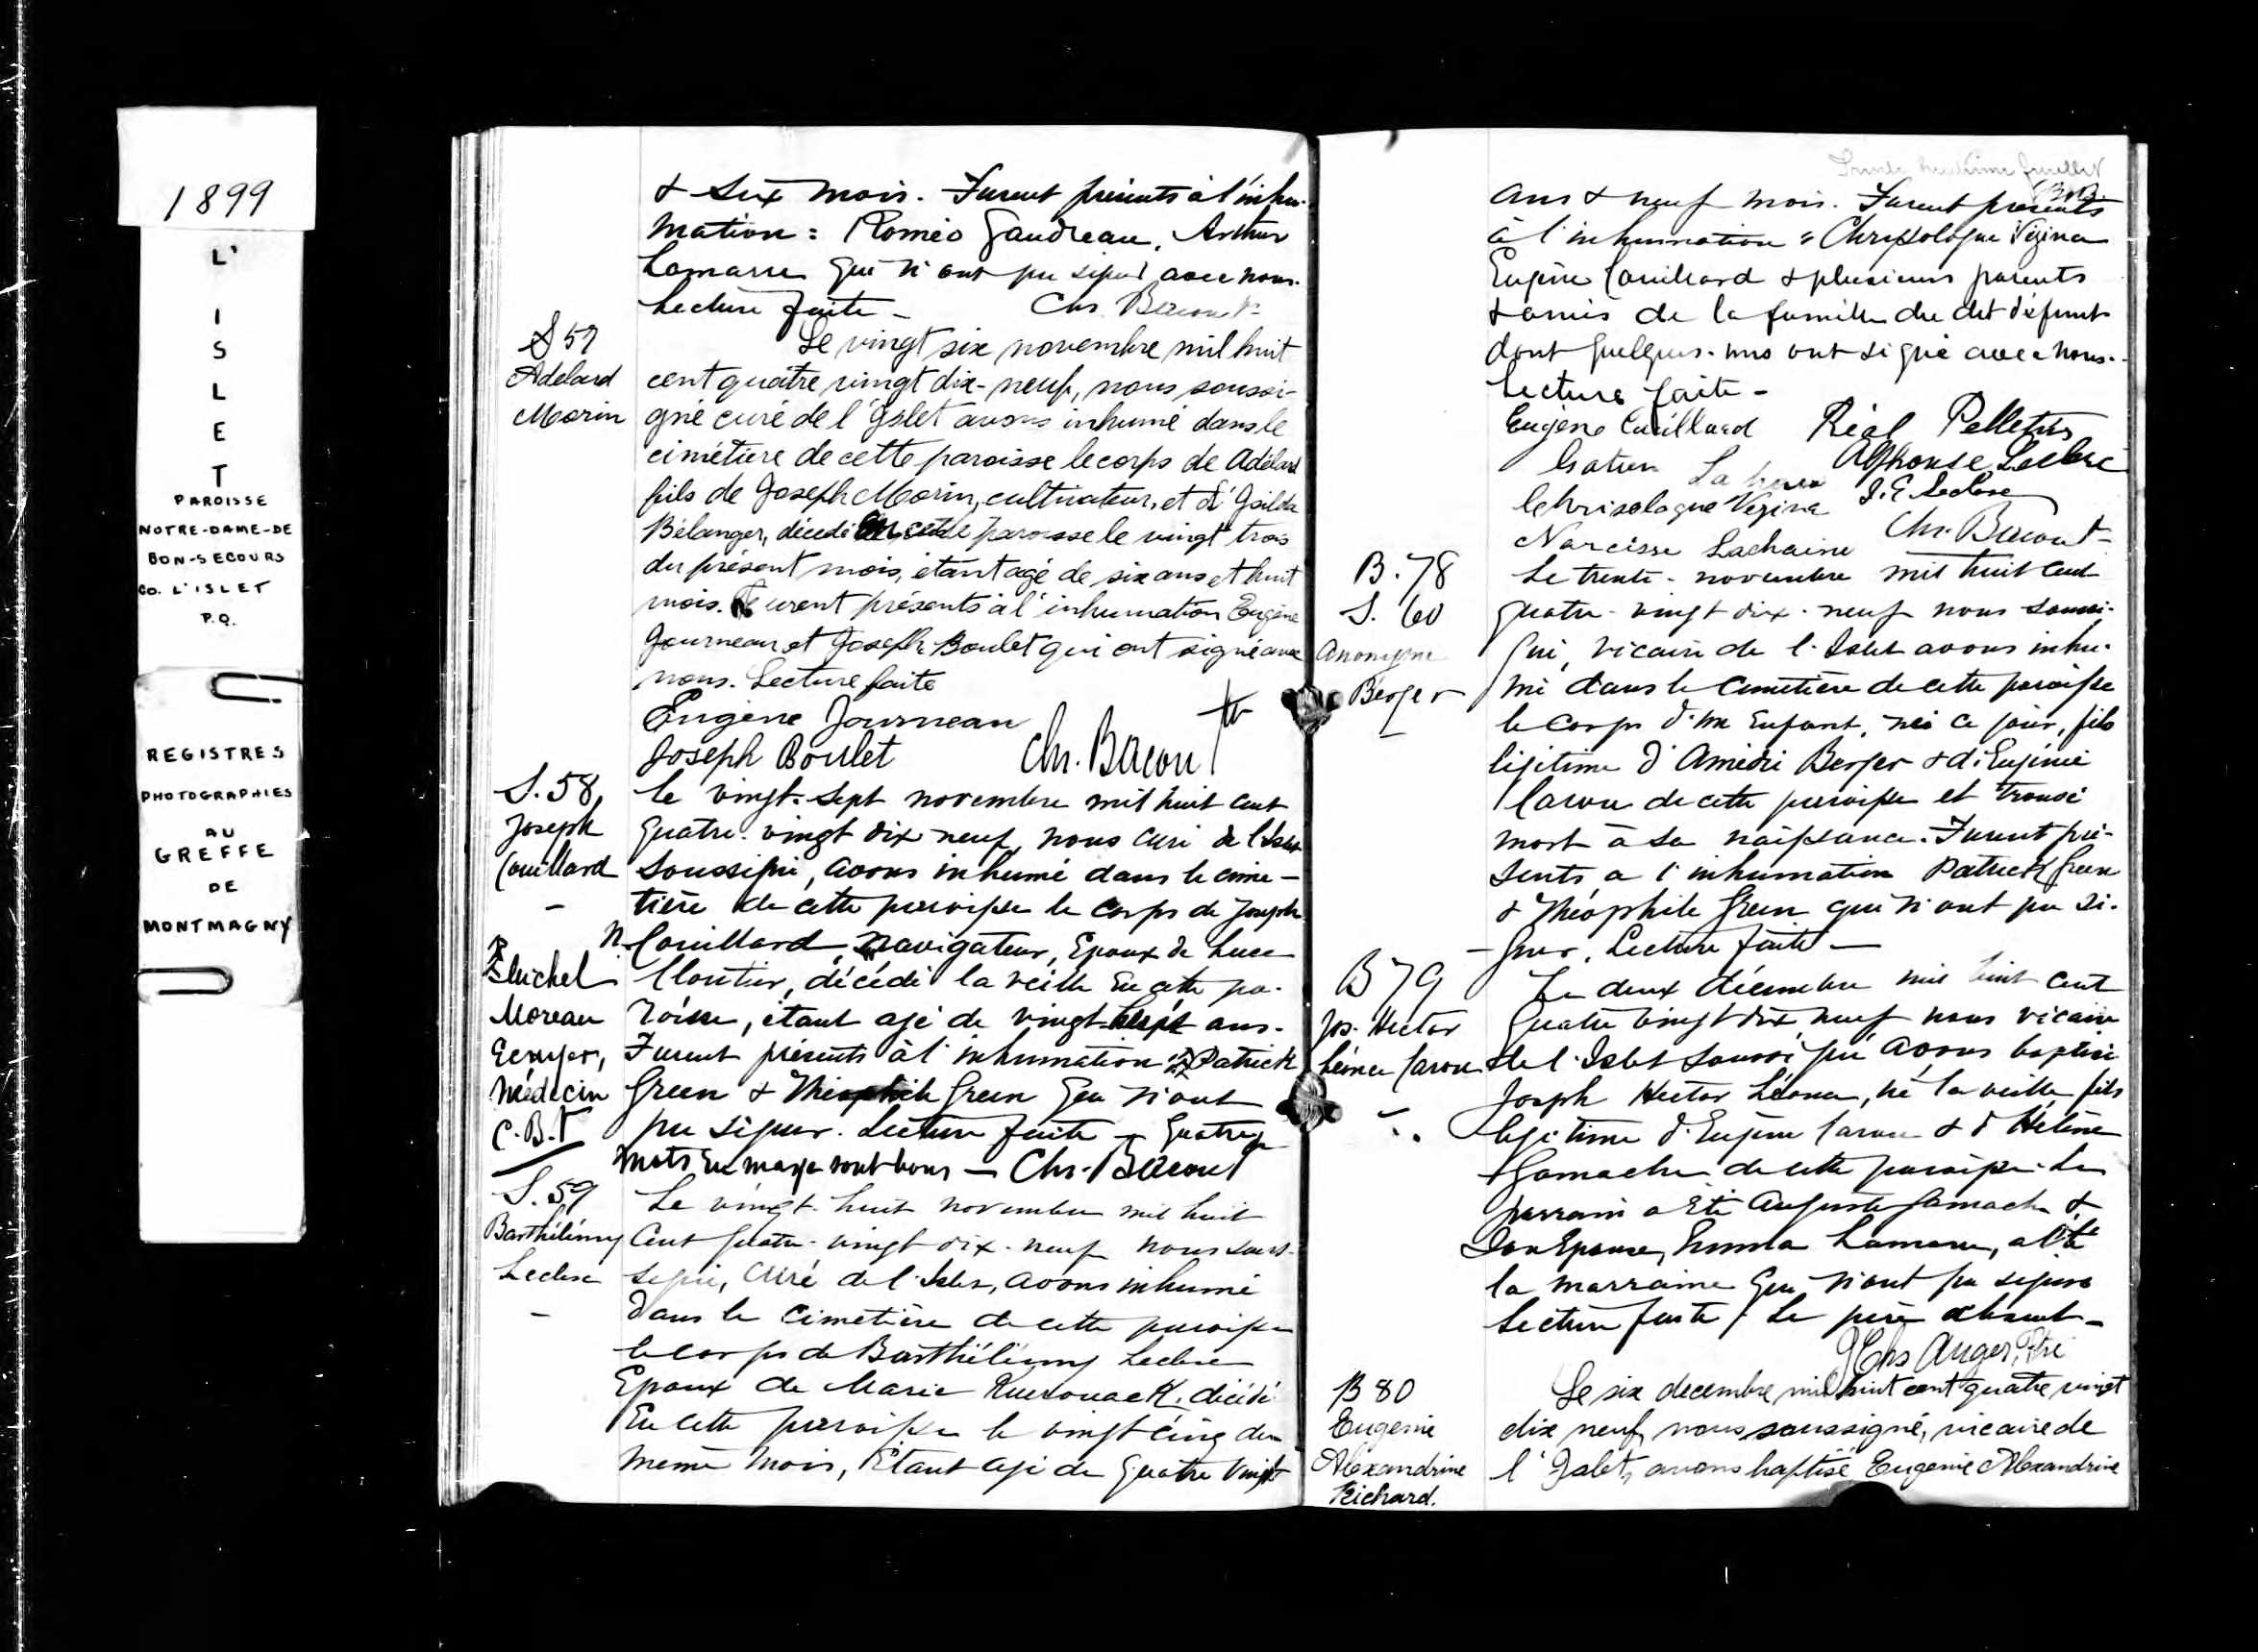 1899
L'
I
S
L
E
T
PAROISSE
NOTRE-DAME-DE
BON-SECOURS
CO. L'ISLET
P.Q.
REGISTRES
PHOTOGRAPHIES
AU
GREFFE
DE
MONTMAGNY
& six mois. Furent présents à l'inhu-
mation : Roméo Gaudreau, Arthur
Lamarre qui n'ont pu signer avec nous.
Lecture faite — Chs Bacon
S 57
Adelard
Morin
Le vingt six novembre mil huit
cent quatre vingt dix-neuf, nous soussi-
gné curé de l'Islet avons inhumé dans le
cimétière de cette paroisse le corps de Adélard
fils de Joseph Morin, cultivateur, et d'Gsilda
Bélanger, décédé en cette paroisse le vingt trois
du présent mois, étant agé de six ans et huit
mois. Furent présents à l'inhumation Eugène
Journeau et Joseph Boulet qui ont signé avec
nous. Lecture faite
Eugène Journeau
Joseph Boulet Chs. Bacon Ptr
S. 58,
Joseph
Couillard
—
Le vingt-sept novembre mil huit cent
quatre-vingt dix neuf, nous curé de l'Islet
soussigné, avons inhumé dans le cime-
tière de cette paroisse le corps de Joseph
n. Couillard, navigateur, Epoux de Luce
Cloutier, décédé la veille en cette pa-
roisse, étant agé de vingt-sept ans.
Furent présents à l'inhumation Patrick
Green & Théophile Green qui n'ont
pu signer. Lecture faite — quatre
mots en marge sont bons — Chs. Bacon
Michel
Moreau
Ecuyer,
Médecin
C.B.
S. 59
Barthélémy
Leclerc
—
Le vingt-huit novembre mil huit
cent quatre-vingt dix-neuf nous sous-
signé, curé de l'Islet, avons inhumé
dans le cimetière de cette paroisse
le corps de Barthélémy Leclerc
Epoux de Marie Kuerouack, décédé
en cette paroisse le vingt cinq du
même mois, Etant agé de quatre vingt
feuillet
ans & neuf mois. Furent présents
à l'inhumation : Chrysologue Vézina
Eugène Couillard & plusieurs parents
& amis de la famille du dit défunt
dont quelques-uns ont signé avec nous.
Lecture faite —
Eugène Couillard Réal Pelletier
Alphonse Leclerc
Chrisologue Vezina J. E. Leclerc
Narcisse Lachaine Chs. Bacon
B. 78
S. 60
Anonyme
Berger
—
Le trente-novembre mil huit cent
quatre-vingt dix-neuf nous soussi-
gné, vicaire de l'Islet avons inhu-
mé dans le cimetière de cette paroisse
le corps d'un Enfant, né ce jour, fils
légitime d'Amédée Berger & d'Eugénie
Caron de cette paroisse et trouvé
mort à sa naissance. Furent pré-
sents a l'inhumation Patrick Green
& Théophile Green qui n'ont pu si-
gner. Lecture faite —
B 79
Jos. Hector
Léonce Caron
Le deux décembre mil huit cent
quatre vingt dix neuf nous vicaire
de l'Islet soussigné avons baptisé
Joseph Hector Léonce, né la veille fils
légitime d'Eugène Caron & d'Hélène
Gamache de cette paroisse. Le
parrain a Eté Auguste Gamache &
Son Epouse, Emma Lamarre, a été
la marraine qui n'ont pu signer
Lecture faite / Le père absent —
Chs Auger, Ptre
B 80
Eugenie
Alexandrine
Richard.
Le six decembre mil huit cent quatre vingt
dix neuf, nous soussigné, vicaire de
l'Islet, avons baptisé Eugenie Alexandrine